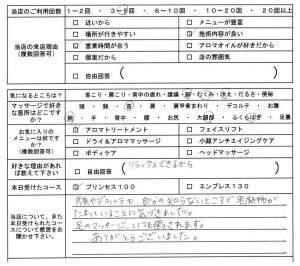 当店のご利用回数 1～2回 ・ 3～5回 ・ 6～10回 ・ 10～20回 ・ 20回以上
当店の来店理由
(複数回答可)
□ 近いから □ メニューが豊富
□ 場所が行きやすい ☑ 施術内容が良い
☑ 営業時間が合う □ アロマオイルが好きだから
□ 個室だから □ 店の雰囲気
□ 自由回答 ( )
気になるところは? 首こり・肩こり・背中の疲れ・腰痛・脚・むくみ・冷え・だるさ・便秘
マッサージで好き
な箇所はどこです
か?
頭 顔 首 肩 肩甲骨まわり デコルテ お腹
腕 手 背中 腰 お尻 太腿部 ふくらはぎ 足裏
お気に入りの
メニューは何です
か?
(複数回答可)
☑ アロマトリートメント □ フェイスリフト
□ ドライ&アロママッサージ □ 小顔アンチエイジングケア
□ ボディケア □ ヘッドマッサージ
好きな理由があれ
ば教えて下さい
□ 自由回答 ( リラックスできるから )
本日受けたコース ☑ プリンセス100 □ エンプレス130
当店について、また
本日受けられたコー
スについて感想をお
聞かせ下さい。
顔やデコルテも、自分の知らないところで老廃物が
たまっていることに気づきました。
足のマッサージ、いつも癒されます。
ありがとうございました。